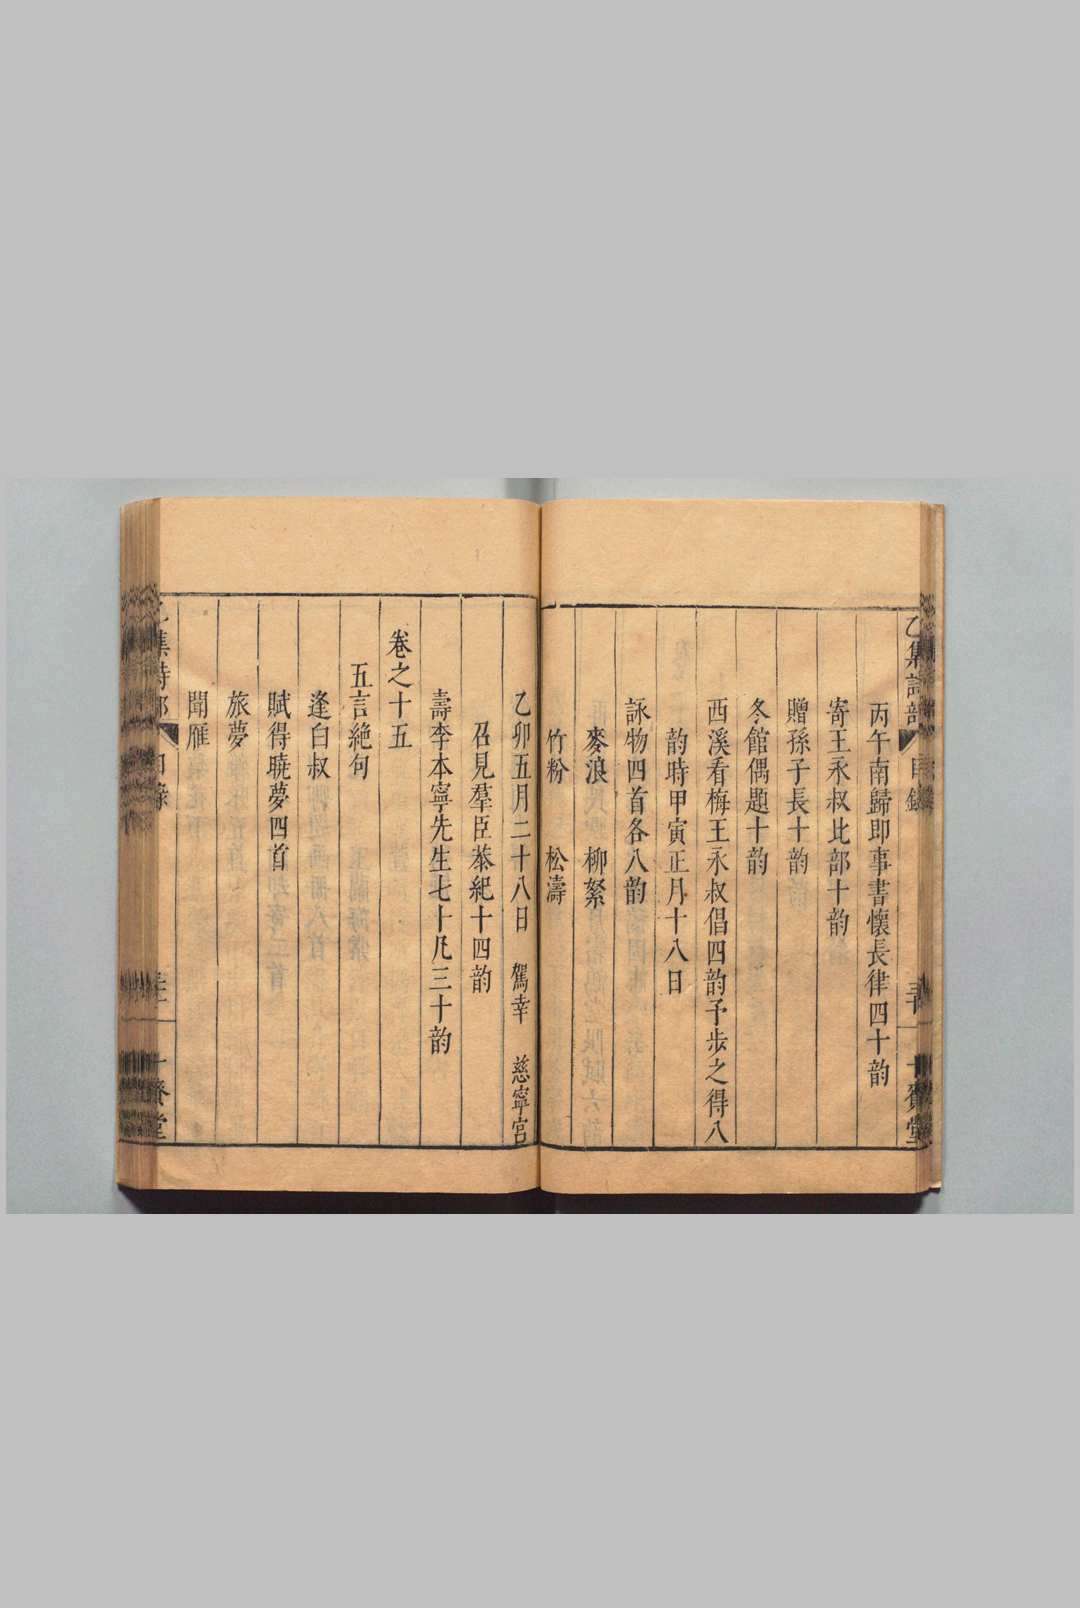 乙集詩部 目錄 三十 十賚堂
丙午南歸即事書懷長律四十韵
寄王永叔比部十韵
贈孫子長十韵
冬館偶題十韵
西溪看梅王永叔倡四韵予步之得八
韵時甲寅正月十八日
詠物四首各八韵
麥浪 柳絮
竹粉 松濤
乙卯五月二十八日 駕幸 慈寧宮
召見羣臣恭紀十四韵
壽李本寧先生七十凡三十韵
卷之十五
五言絶句
逢白叔
賦得曉夢四首
旅夢
聞雁
乙集詩部 目錄 十賚堂